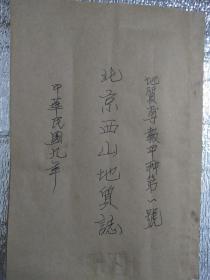 地質專報甲種第一號
北京西山地質誌
中華民國九年